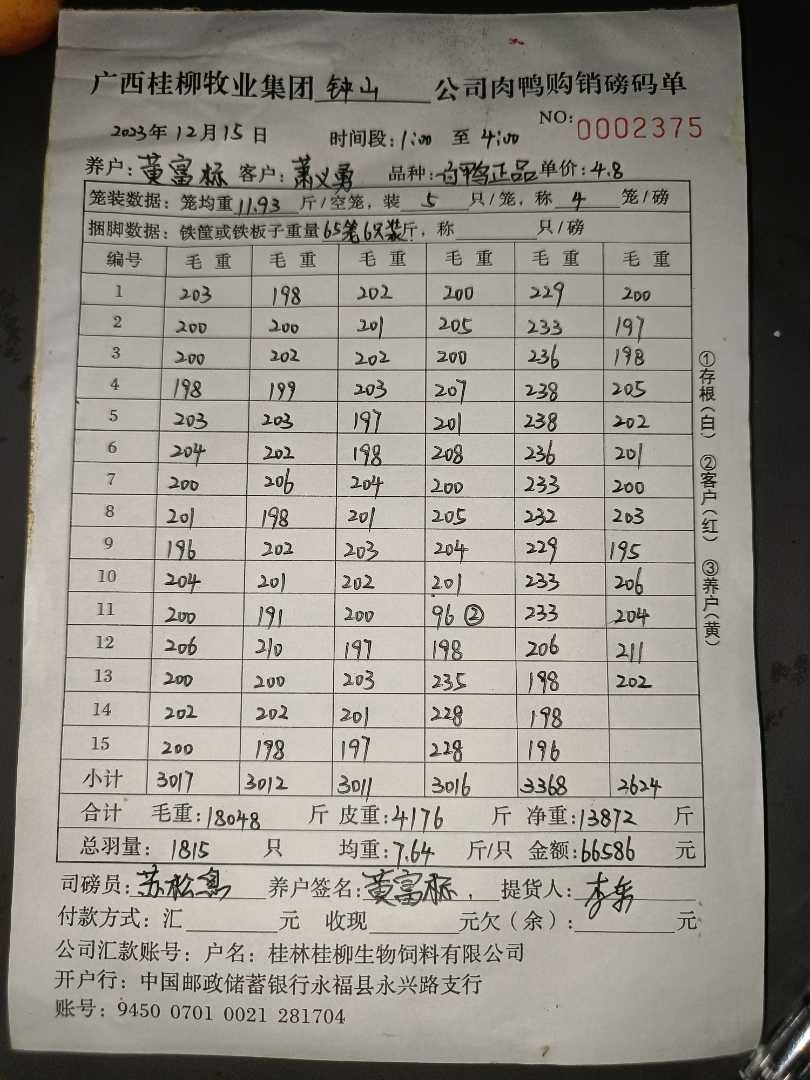 广西桂柳牧业集团 钟山 公司肉鸭购销磅码单
2023年12月15日 时间段: 1:00 至 4:00 NO: 0002375
养户: 黄富标 客户: 萧义勇 品种: 白鸭正品 单价: 4.8
笼装数据: 笼均重 11.93 斤/空笼, 装 5 只/笼, 称 4 笼/磅
捆脚数据: 铁筐或铁板子重量 65笼6只装 斤, 称 只/磅
编号 毛重 毛重 毛重 毛重 毛重 毛重
1 203 198 202 200 229 200
2 200 200 201 205 233 197
3 200 202 202 200 236 198
4 198 199 203 207 238 205
5 203 203 197 201 238 202
6 204 202 198 208 236 201
7 200 206 204 200 233 200
8 201 198 201 205 232 203
9 196 202 203 204 229 195
10 204 201 202 201 233 206
11 200 191 200 96 ② 233 204
12 206 210 197 198 206 211
13 200 200 203 235 198 202
14 202 202 201 228 198
15 200 198 197 228 196
小计 3017 3012 3011 3016 3368 2624
合计 毛重: 18048 斤 皮重: 4176 斤 净重: 13872 斤
总羽量: 1815 只 均重: 7.64 斤/只 金额: 66586 元
司磅员: 苏松 养户签名: 黄富标, 提货人: 李
付款方式: 汇 元 收现 元欠(余): 元
公司汇款账号: 户名: 桂林桂柳生物饲料有限公司
开户行: 中国邮政储蓄银行永福县永兴路支行
账号: 9450 0701 0021 281704
①存根(白) ②客户(红) ③养户(黄)